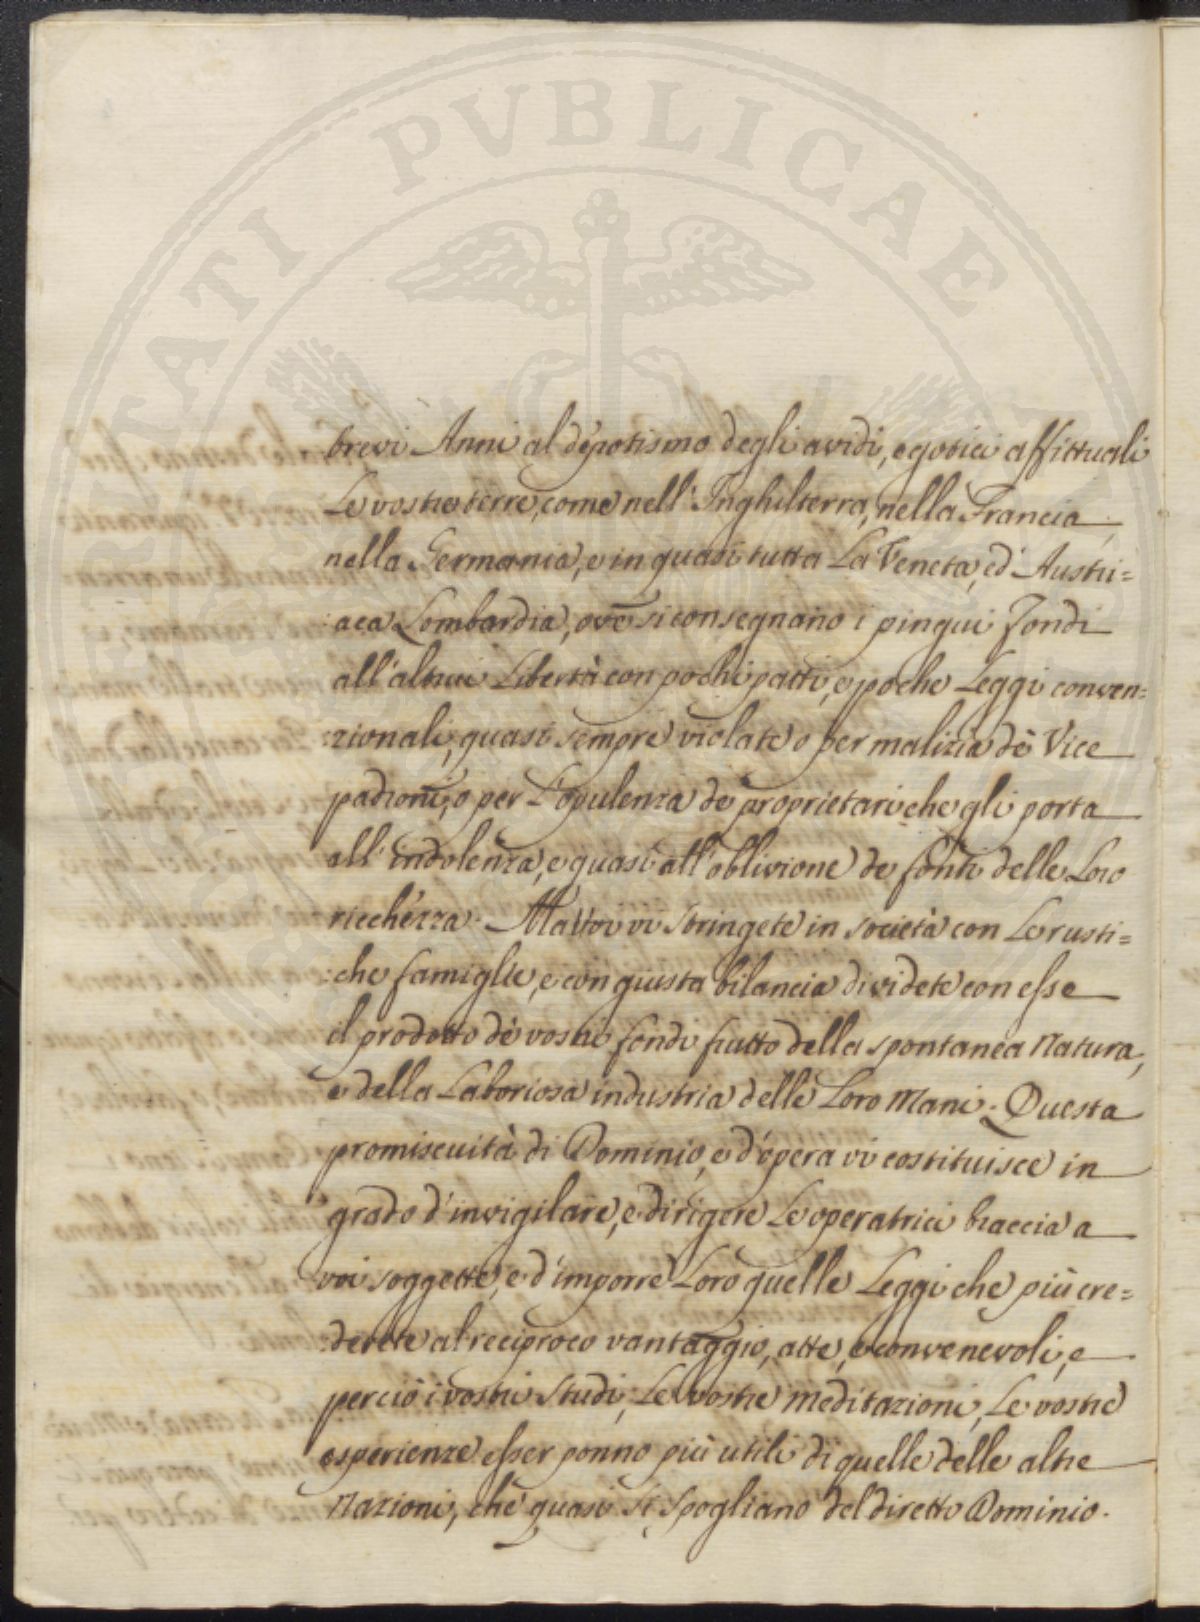 PROSPERITATI PUBLICAE
brevi Anni al dèpotismo degli avidi, e gotici affittuali
Le vostre terre, come nell'Inghilterra, nella Francia,
nella Germania, e in quasi tutta La Veneta, ed Austri=
:aca Lombardia, ove si consegnano i pingui Fondi
all'altrui Libertà con pochi patti, e poche Leggi conven=
:zionali, quasi sempre violate o per malizia de' Vice
padroni, o per L'opulenza de' proprietari che gli porta
all'indolenza, e quasi all'oblivione de' fonti delle Loro
ricchezza. Ma Voi vi stringete in società con Le rusti=
:che famiglie, e con giusta bilancia dividete con esse
il prodotto de' vostri fondi frutto della spontanea Natura,
e della Laboriosa industria delle Loro Mani. Questa
promiscuità di Dominio, e d'opera vi costituisce in
grado d'invigilare, e dirigere Le operatrici braccia a
voi soggette, e d'imporre Loro quelle Leggi che più cre=
:derete al reciproco vantaggio, atte, e convenevoli, e
perciò i vostri Studi, Le vostre Meditazioni, Le vostre
esperienze esser ponno più utili di quelle delle altre
Nazioni, che quasi si spogliano del diretto Dominio.